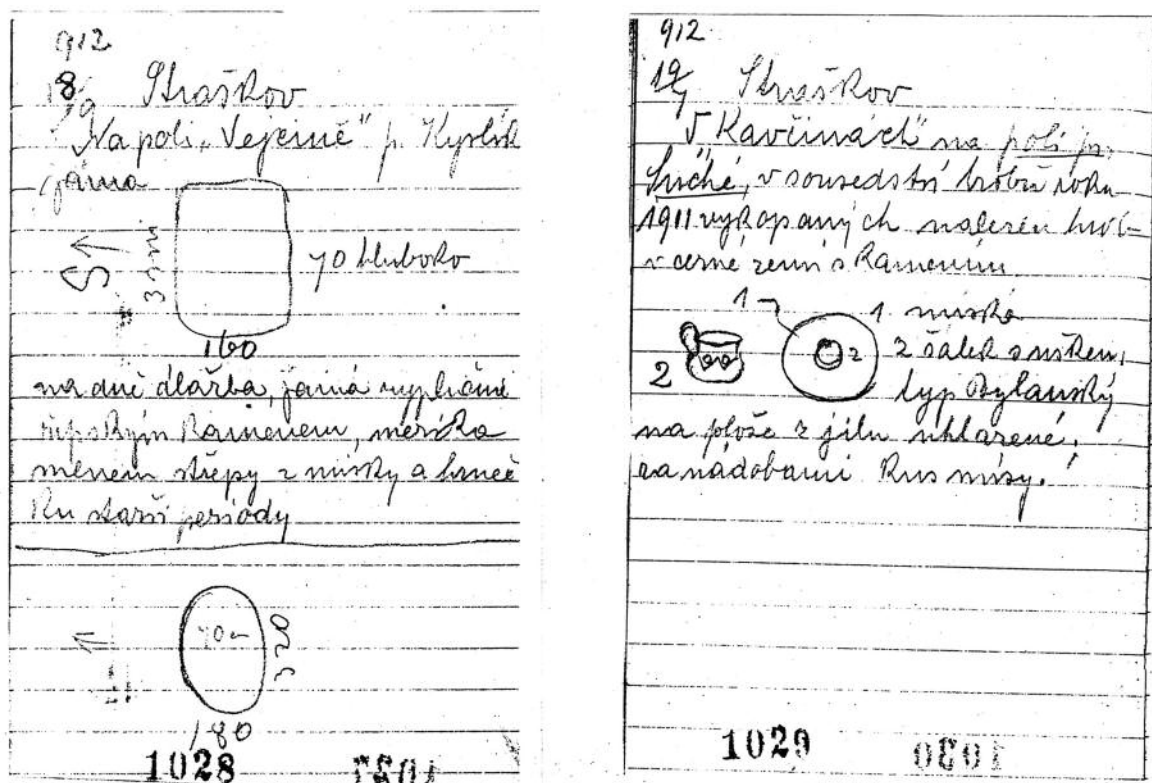 912
18/9 Straškov
Na poli „Vejcině" p. Kyslík
jáma
S
3 m
70 hluboko
160
na dně dlažba, jamá vyplněna
řipským kamenem,
střepy z misky a
ku starší periody
70 cm
320
180
1028
912
19/ Straškov
V „Kavčinách" na poli p.
Suché, v sousedství hrobů roku
1911 vykopaných nalezen hrob
v černé zemi s kamením
1
1. miska
2
2
2 šálek s uškem,
typ Bylanský
na ploše z jílu uhlazené,
za nádobami kus mísy.
1029